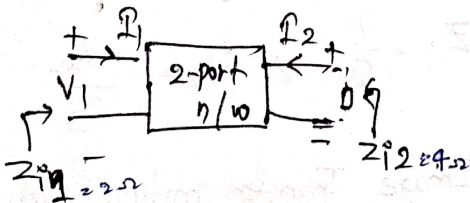 + I1 I2 +
2-port
n/w
V1
-
Zi1 = 2Ω
Zi2 = 4Ω